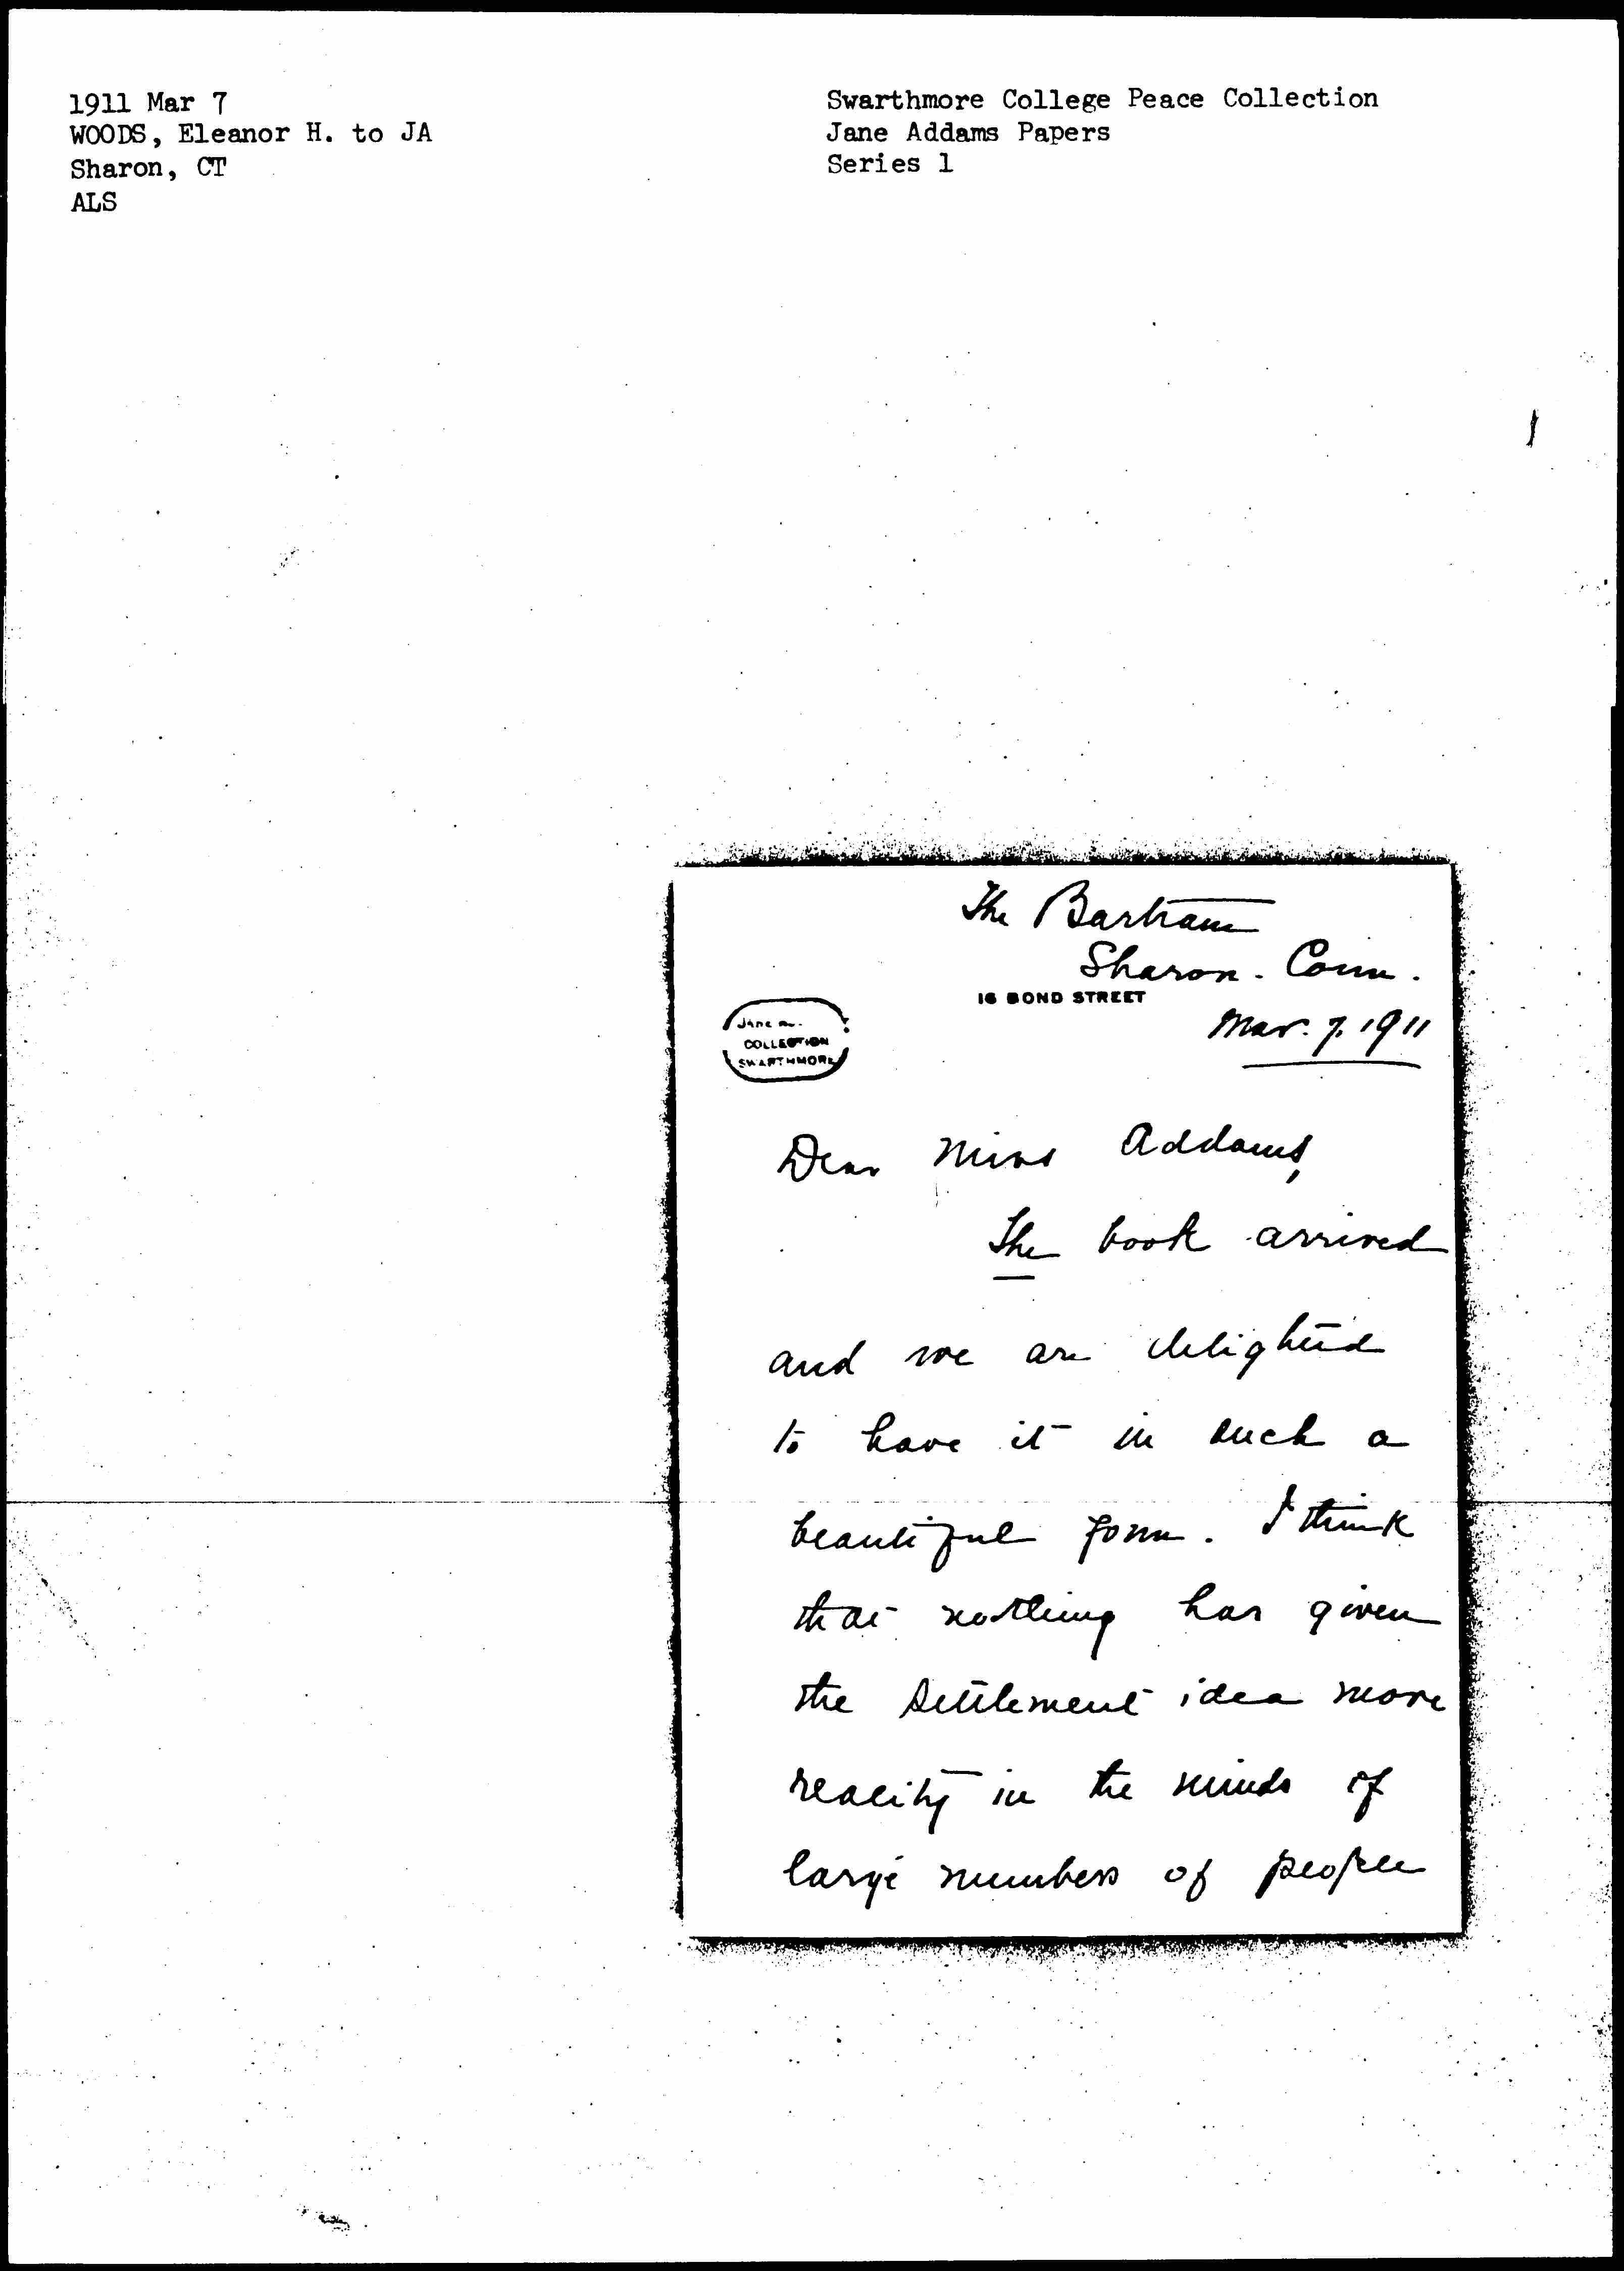 1911 Mar 7
WOODS, Eleanor H. to JA
Sharon, CT
ALS
Swarthmore College Peace Collection
Jane Addams Papers
Series 1
1
The Bartram
Sharon - Conn.
16 BOND STREET
Mar. 7. 1911
Jane
COLLECTION
SWARTHMORE
Dear Miss Addams,
The book arrived
and we are delighted
to have it in such a
beautiful form. I think
that nothing has given
the Settlement idea more
reality in the minds of
large numbers of people